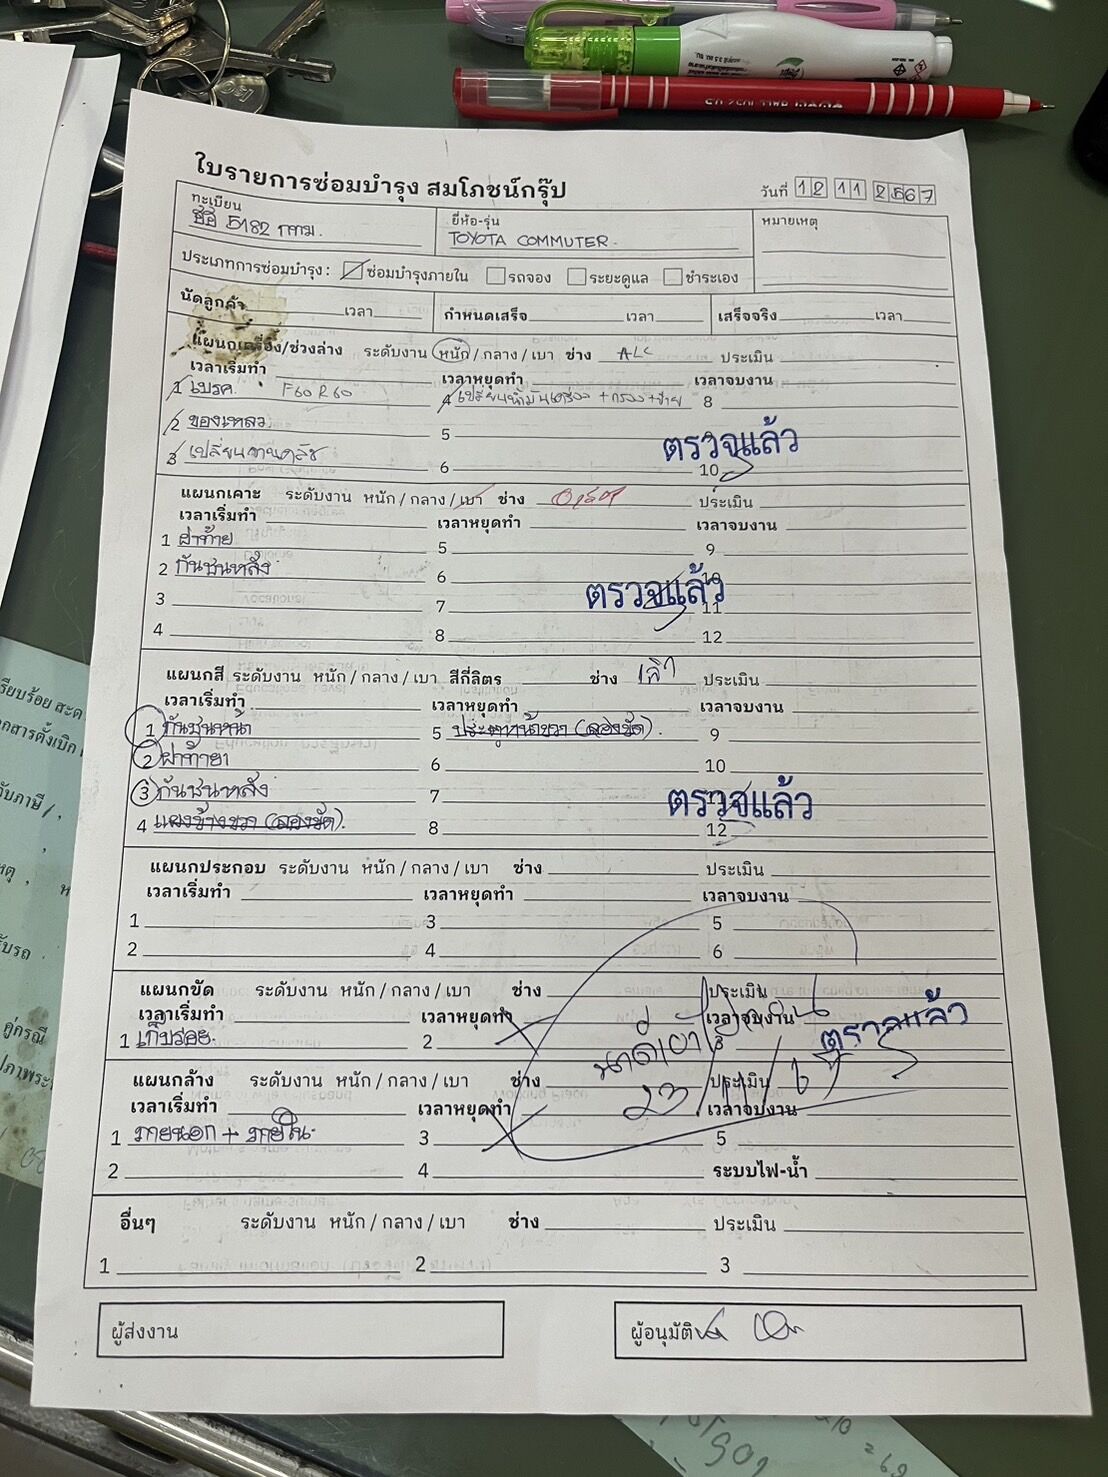 ใบรายการซ่อมบำรุง สมโภชน์กรุ๊ป
วันที่ 12 11 2567
ทะเบียน
5182 กทม.
ยี่ห้อ-รุ่น
TOYOTA COMMUTER
หมายเหตุ
ประเภทการซ่อมบำรุง : ซ่อมบำรุงภายใน รถจอง ระยะดูแล ชำระเอง
นัดลูกค้า เวลา กำหนดเสร็จ เวลา เสร็จจริง เวลา
แผนกเครื่อง/ช่วงล่าง ระดับงาน หนัก / กลาง / เบา ช่าง ประเมิน
เวลาเริ่มทำ เวลาหยุดทำ เวลาจบงาน
1 เบรค. F60 R60 4 เปลี่ยนน้ำมันเครื่อง + กรอง 8
2 ของเหลว 5 ตรวจแล้ว
3 เปลี่ยนจานคลัช 6 10
แผนกเคาะ ระดับงาน หนัก / กลาง / เบา ช่าง ประเมิน
เวลาเริ่มทำ เวลาหยุดทำ เวลาจบงาน
1 ฝาท้าย 5 9
2 กันชนหลัง 6 10
ตรวจแล้ว
3 7 11
4 8 12
แผนกสี ระดับงาน หนัก / กลาง / เบา สีกี่ลิตร ช่าง ประเมิน
เวลาเริ่มทำ เวลาหยุดทำ เวลาจบงาน
1 กันชนหน้า 5 ประตูหน้าขวา (ลองขัด). 9
2 ฝาท้าย 6 10
3 กันชนหลัง 7 ตรวจแล้ว
4 แผงข้างขวา (ลองขัด). 8 12
แผนกประกอบ ระดับงาน หนัก / กลาง / เบา ช่าง ประเมิน
เวลาเริ่มทำ เวลาหยุดทำ เวลาจบงาน
1 3 5
2 4 6
แผนกขัด ระดับงาน หนัก / กลาง / เบา ช่าง ประเมิน
เวลาเริ่มทำ เวลาหยุดทำ เวลาจบงาน
1 เก็บรอย 2 3 ตรวจแล้ว
แผนกล้าง ระดับงาน หนัก / กลาง / เบา ช่าง ประเมิน
23/11/67
เวลาเริ่มทำ เวลาหยุดทำ เวลาจบงาน
1 ภายนอก + ภายใน 3 5
2 4 ระบบไฟ-น้ำ
อื่นๆ ระดับงาน หนัก / กลาง / เบา ช่าง ประเมิน
1 2 3
ผู้ส่งงาน
ผู้อนุมัติ